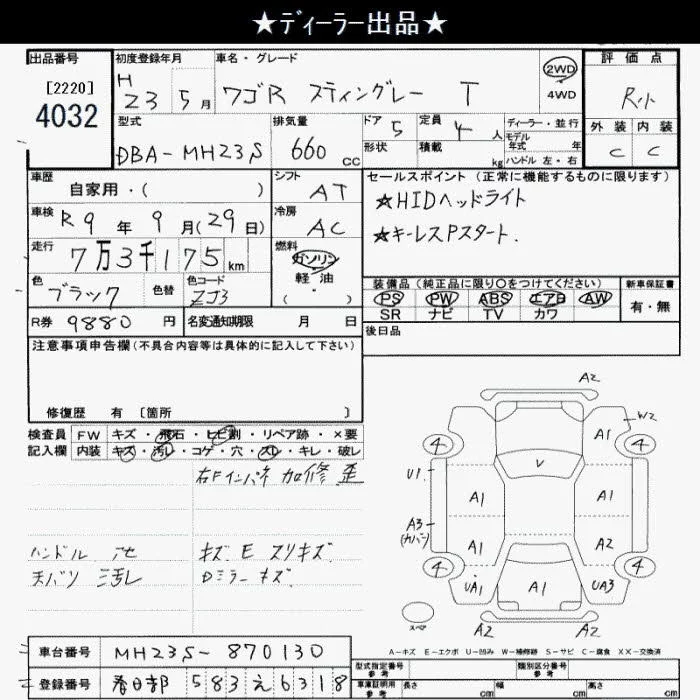 ★ディーラー出品★
出品番号 初度登録年月 車名・グレード 評価点
[2220] H 23 年 5月 ワゴR スティングレー T 2WD 4WD R
4032 型式 排気量 ドア 5 定員 4人 ディーラー・並行 外装 内装
DBA-MH23S 660cc 形状 積載 kg モデル年式 年 ハンドル 左・右 C C
車歴 自家用・( ) シフト AT セールスポイント (正常に機能するものに限ります)
車検 R9年9月(29日) 冷房 AC ★HIDヘッドライト
走行 7万3千175km 燃料 ガソリン ★キーレスPスタート.
色 ブラック 色替 色コード ZJ3 軽油 ( ・ ) 装備品(純正品に限り○をつけてください) 新車保証書
PS PW ABS エアB AW 有・無
SR ナビ TV カワ
R券 9880円 名変通知期限 月 日 後日品
注意事項申告欄(不具合内容等は具体的に記入して下さい)
修復歴 有 [箇所 ]
検査員 FW キズ・飛石・ヒビ割・リペア跡・×要
記入欄 内装 キズ・汚レ・コゲ・穴・スレ・キレ・破レ
右Fインパネ 加修 歪
ハンドル キズ E スリキズ
天バリ 汚レ Dミラー キズ
A2
W2
A1
4 4
V
U1
A1 A1
A3
(カバー)
A1 A2
4 4
UA1 A1 UA3
スペア A2 A2
A-キズ E-エクボ U-凹み W-補修跡 S-サビ C-腐食 XX-交換済
車台番号 MH23S-870130 型式指定番号 参考 類別区分番号 参考
登録番号 春日部 583 え 6318 車庫証明用 参考 長さ cm 幅 cm 高さ cm